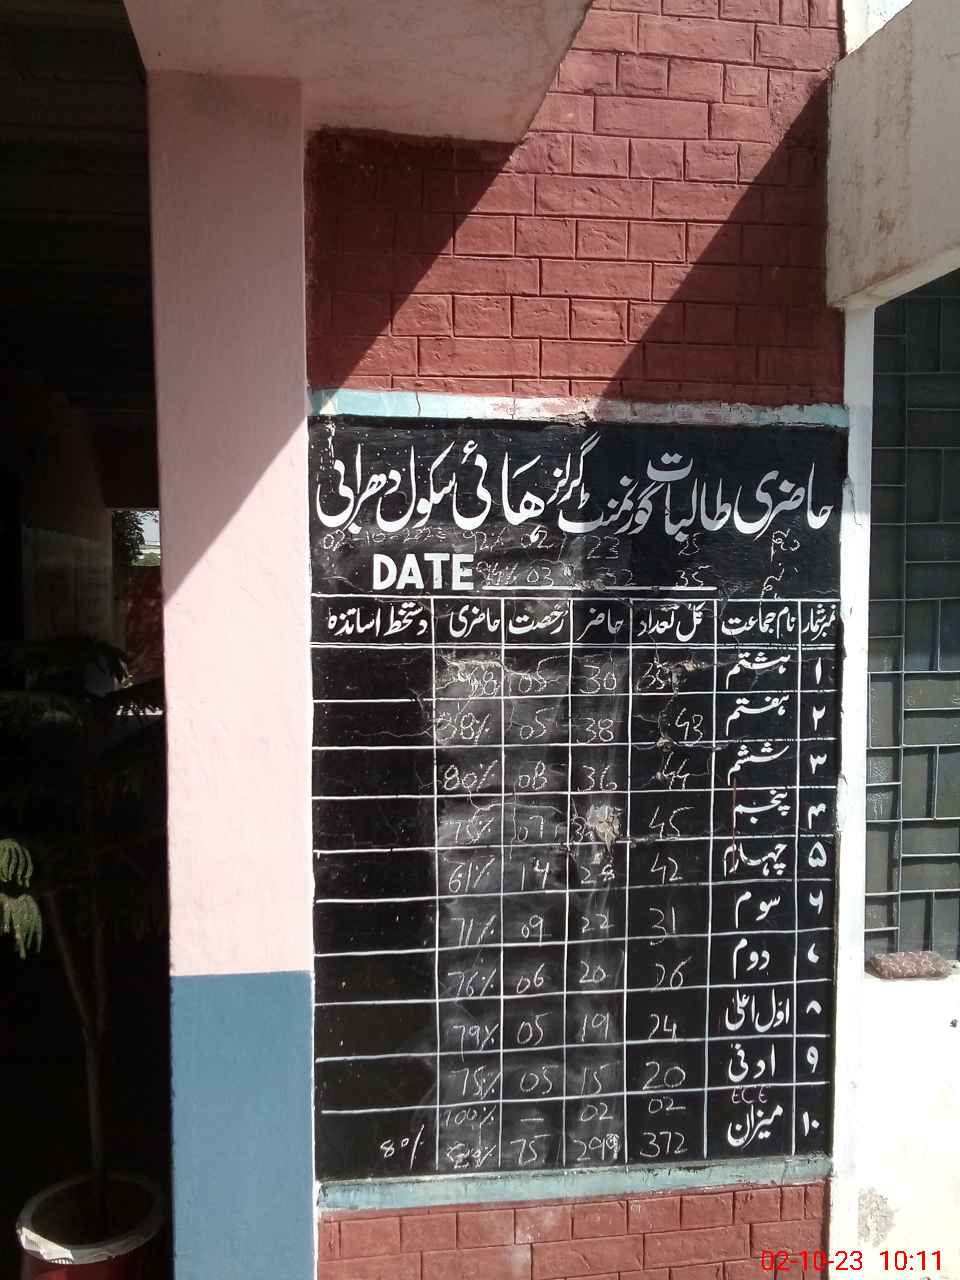 حاضری طالبات گورنمنٹ گرلز ہائی سکول دھرابی
دہم 25 23 02 92%
نہم 35 32 03 DATE
نمبر شمار نام جماعت کل تعداد حاضر رخصت حاضری دستخط اساتذہ
۱ ہشتم 35 30 05
۲ ہفتم 43 38 05 88%
۳ ششم 44 36 08 80%
۴ پنجم 45 07 75%
۵ چہارم 42 28 14 61%
۶ سوم 31 22 09 71%
۷ دوم 26 20 06 76%
۸ اول اعلیٰ 24 19 05 79%
۹ ادنیٰ 20 15 05 75%
ECE 02 02 — 100%
۱۰ میزان 372 75 80%
02-10-23 10:11